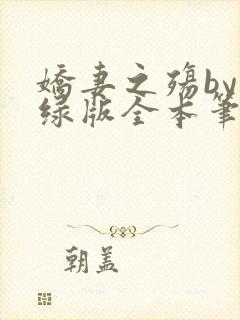 嬌妻之殤by
绿版全本笔
朝盖